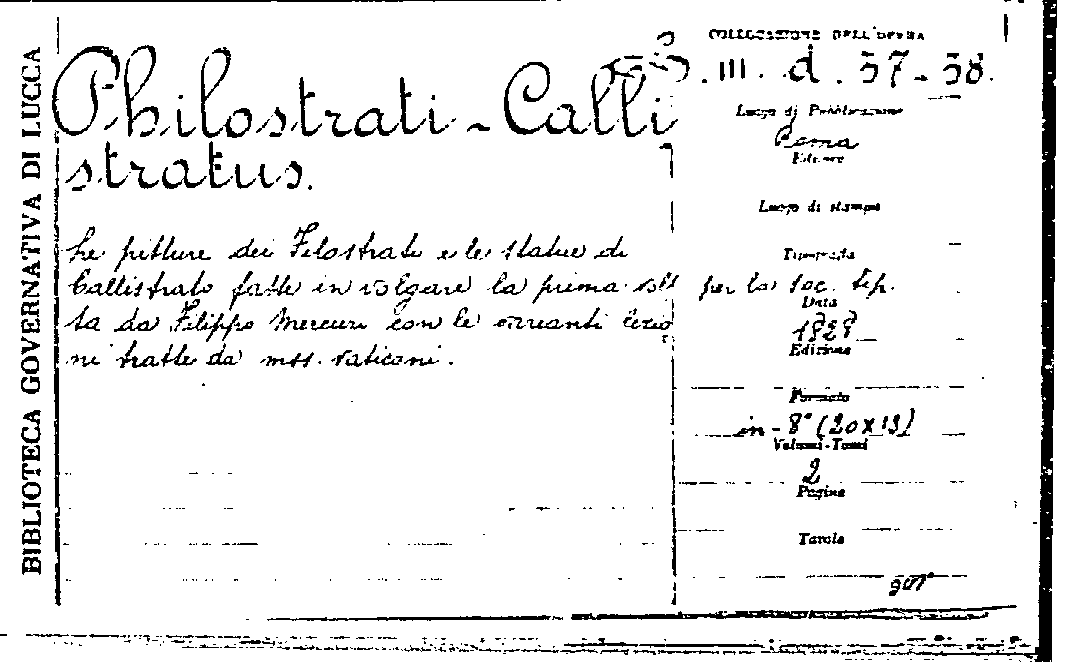 BIBLIOTECA GOVERNATIVA DI LUCCA
Philostrati - Calli
stratus.
Le pitture dei Filostrati e le statue di
Callistrato fatte in volgare la prima vol
ta da Filippo Mercuri con le varianti lezio
ni tratte da mss. vaticani.
COLLOCAZIONE DELL'OPERA
III. d. 57-58.
Luogo di Pubblicazione
Roma
Editore
Luogo di stampa
Tipografia
per la soc. tip.
Data
1828
Edizione
Formato
in-8° (20x13)
Volumi-Tomi
2
Pagine
Tavole